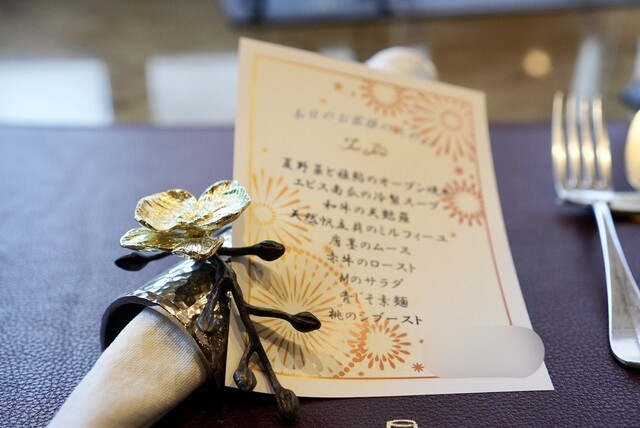 本日のお客様の
夏野菜と稚鮎のオーブン焼き
エビス南瓜の冷製スープ
和牛の天麩羅
天然帆立貝のミルフィーユ
唐墨のムース
赤牛のロースト
Mのサラダ
青じそ素麺
桃のシブースト